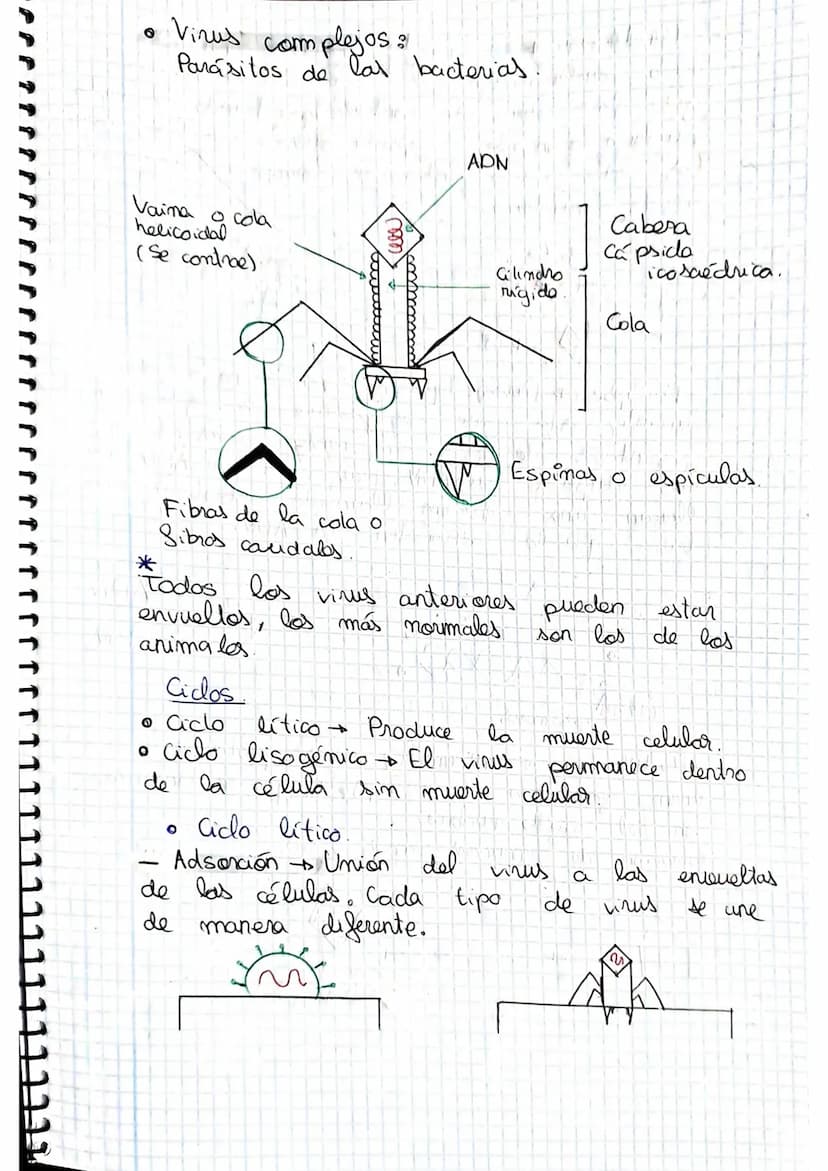 • Virus complejos:
Parásitos de las bacterias.
ADN
Vaina o cola
helicoidal
(Se contrae)
Cabeza
Cápsida
icosaédrica.
Cilindro
rígido.
Cola
Espinas o espículas.
Fibras de la cola o
fibras caudales.
*
Todos los virus anteriores pueden estar
envueltos, los más normales son los de los
animales.
Ciclos.
• Ciclo lítico → Produce la muerte celular.
• Ciclo lisogénico → El virus permanece dentro
de la célula sin muerte celular.
• Ciclo lítico.
- Adsorción → Unión del virus a las envueltas
de las células. Cada tipo de virus se une
de manera diferente.